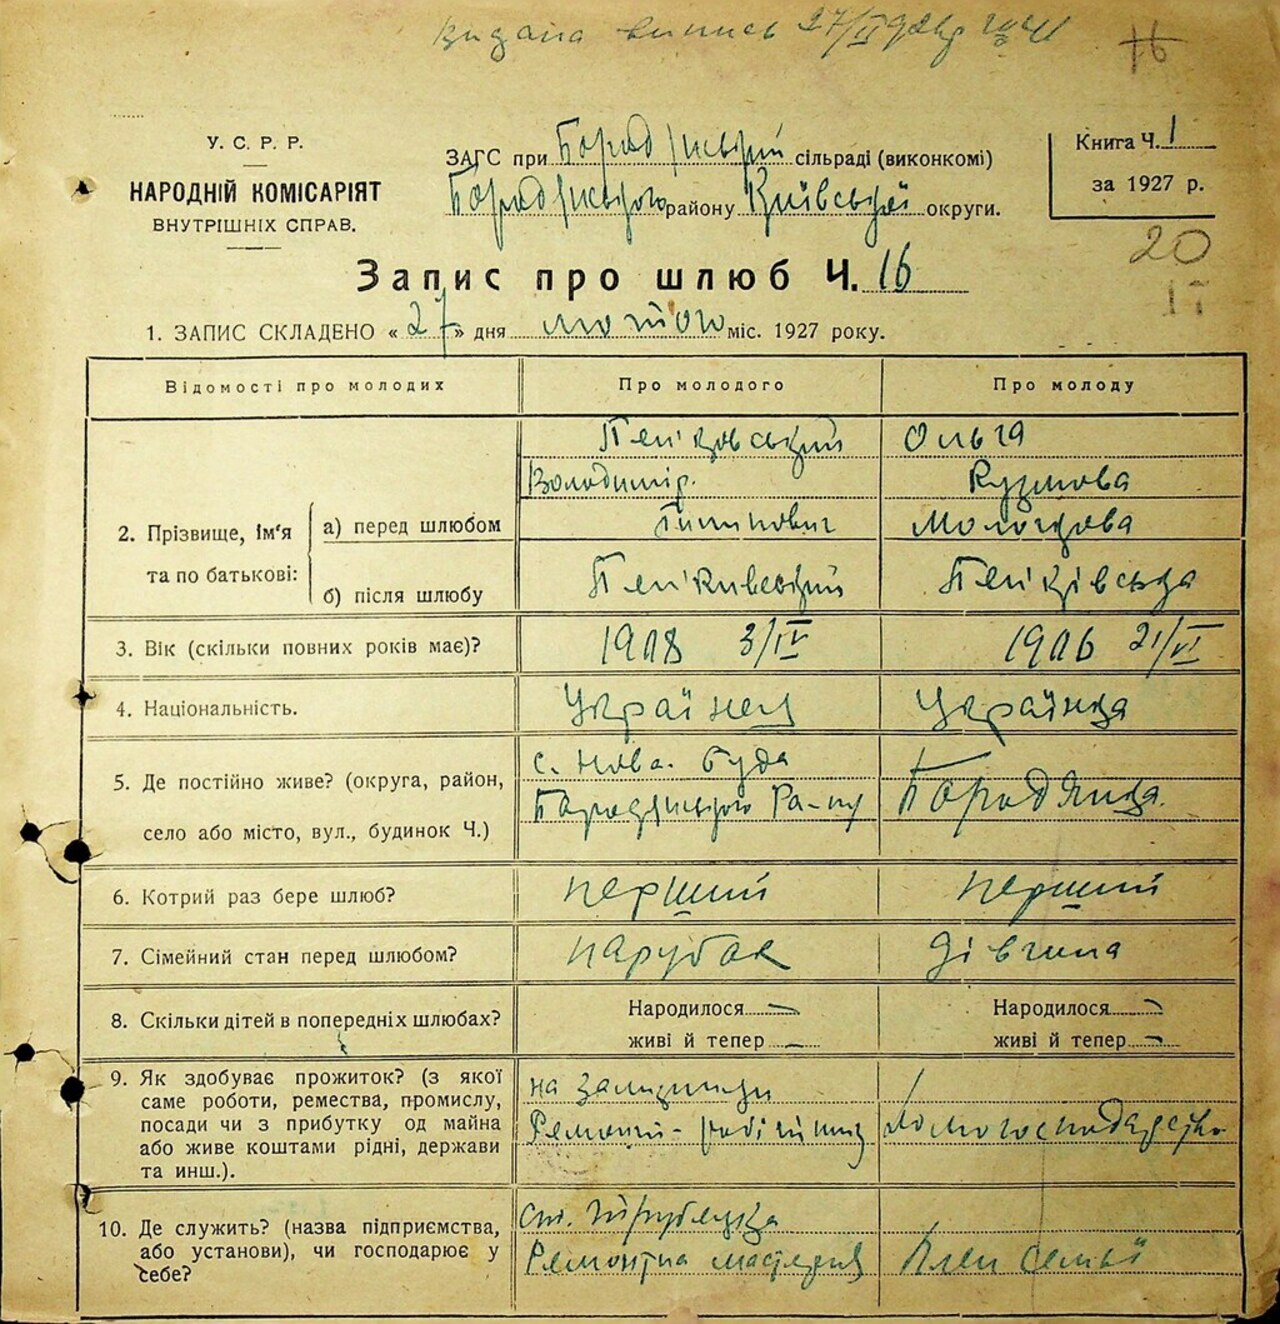 видана випись 27/II
16
У. С. Р. Р.
НАРОДНІЙ КОМІСАРІЯТ
ВНУТРІШНІХ СПРАВ.
ЗАГС при Бородянській сільраді (виконкомі)
Бородянського району Київської округи.
Книга Ч. 1
за 1927 р.
20
Запис про шлюб Ч. 16
1. ЗАПИС СКЛАДЕНО « 27 » дня лютого міс. 1927 року.
Відомості про молодих
Про молодого
Про молоду
2. Прізвище, ім'я
та по батькові:
а) перед шлюбом
Володимір.
Ольга
Кузмова
б) після шлюбу
3. Вік (скільки повних років має)?
1908 3/IV
1906 21/VI
4. Національність.
Українец
Українка
5. Де постійно живе? (округа, район,
село або місто, вул., будинок Ч.)
с. Нова. Буда
Бородянського Ра-ну
Бородянка.
6. Котрий раз бере шлюб?
перший
перший
7. Сімейний стан перед шлюбом?
парубок
дівчина
8. Скільки дітей в попередніх шлюбах?
Народилося —
живі й тепер —
Народилося —
живі й тепер —
9. Як здобуває прожиток? (з якої
саме роботи, ремества, промислу,
посади чи з прибутку од майна
або живе коштами рідні, держави
та инш.).
на
Ремонт- робітник
домогосподарство
10. Де служить? (назва підприємства,
або установи), чи господарює у
себе?
ст.
Ремонтна
Член семьї